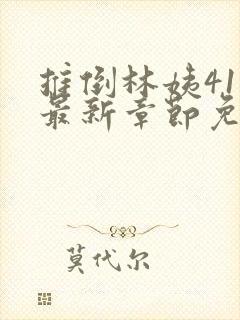 推倒林姨41
最新章节免
莫代尔